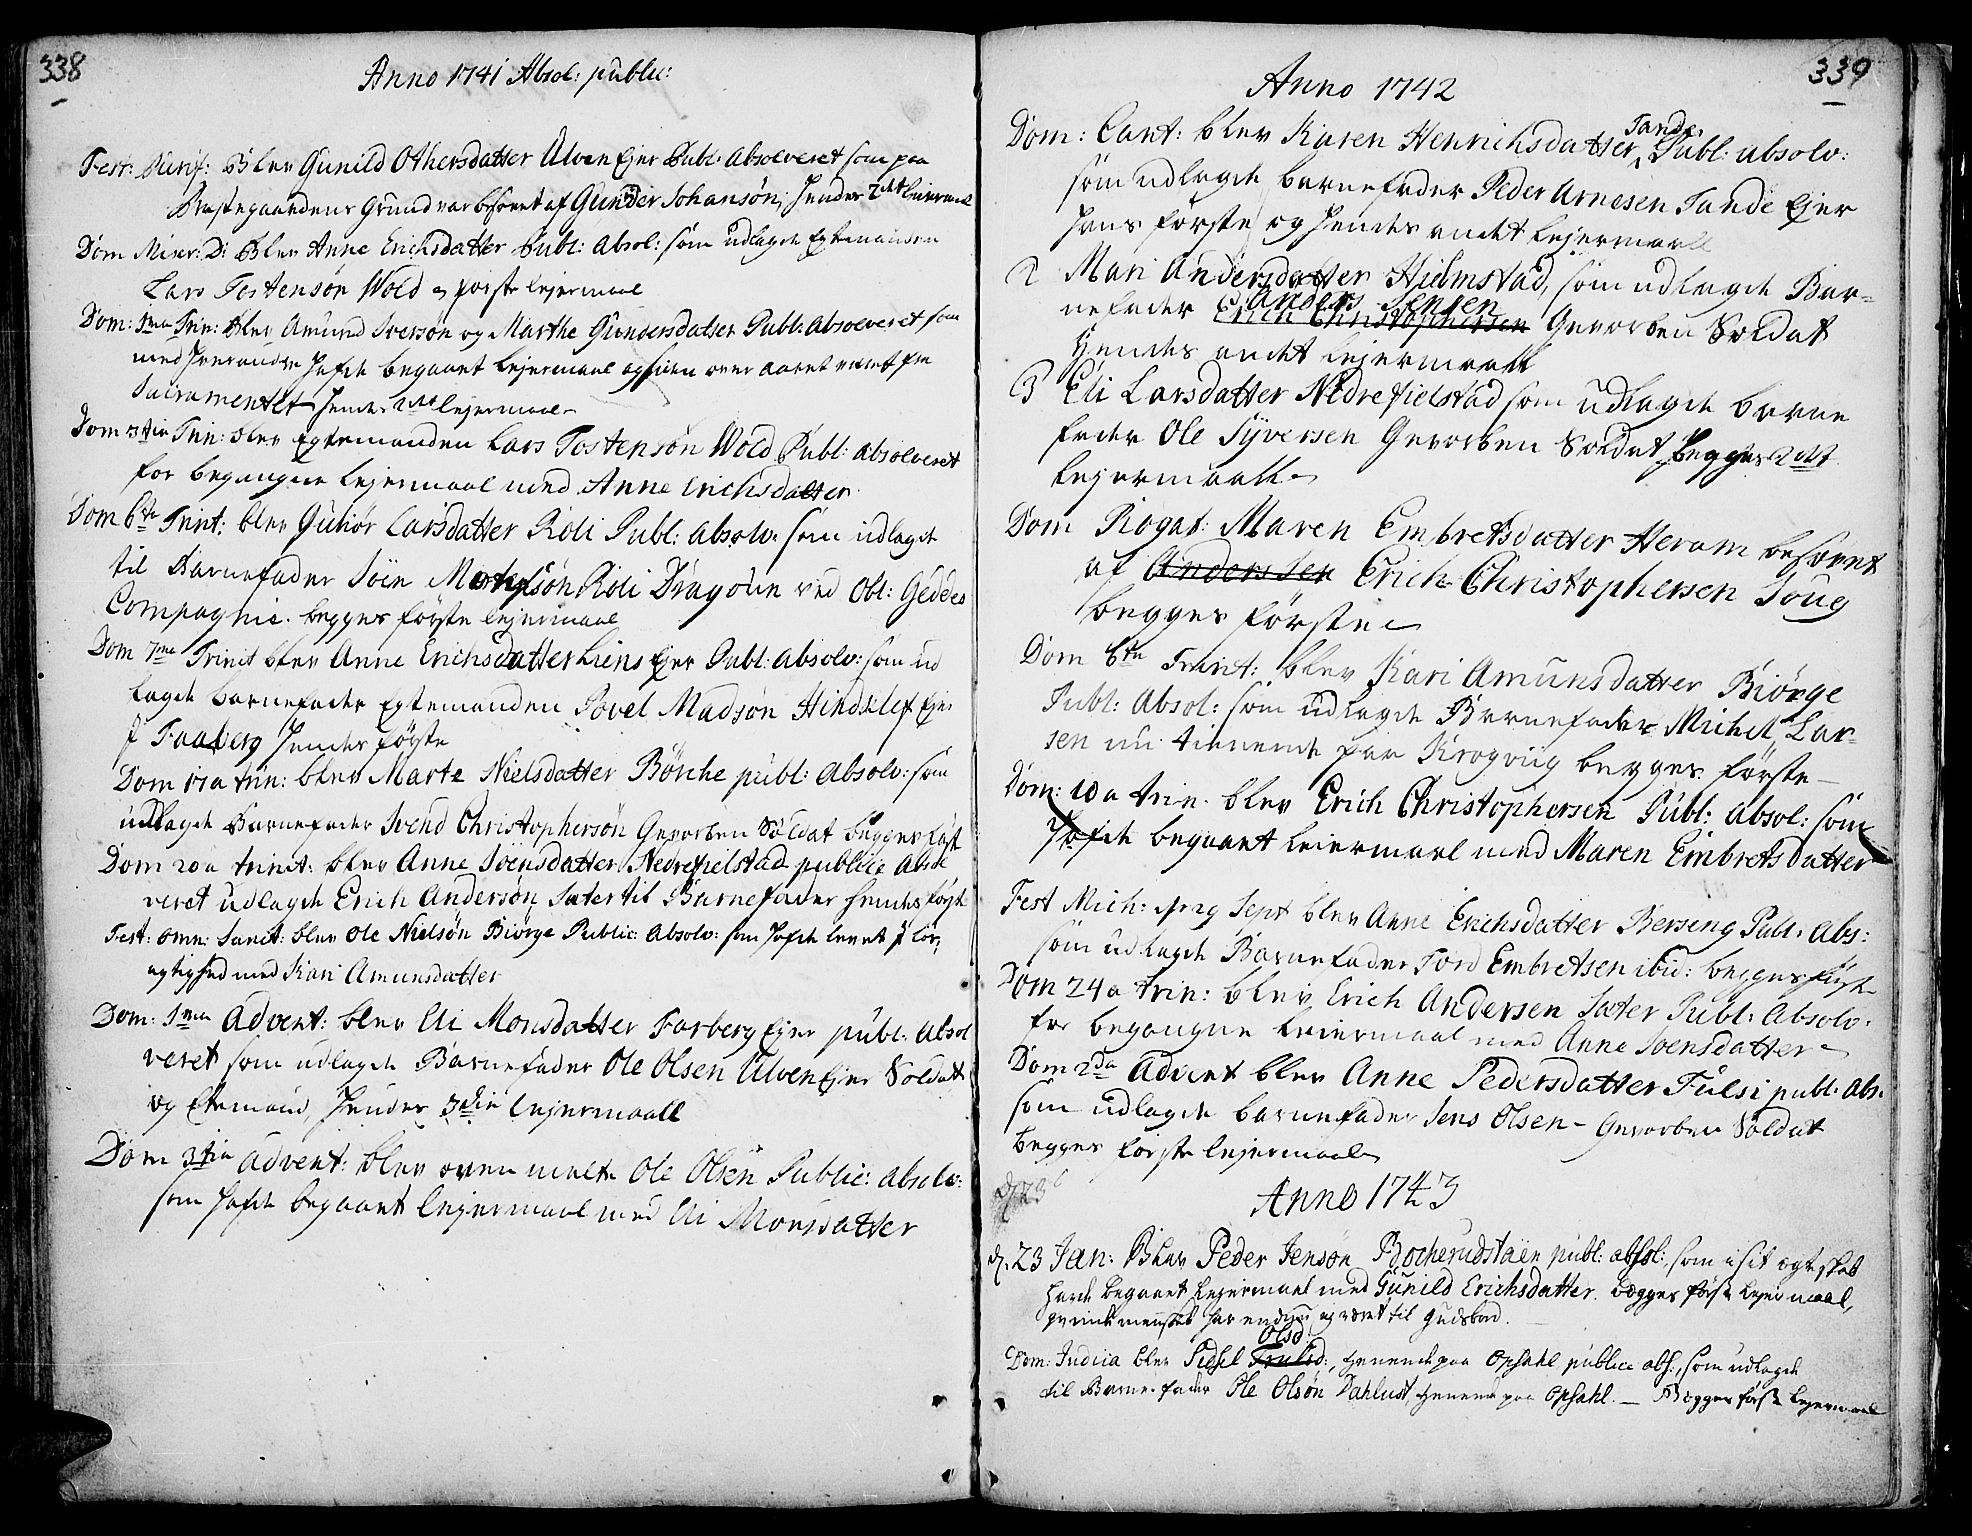 338
Anno 1741 Absol: public:
Fest: Purif: Blev Gunild Othersdatter Ulven Ejer Publ: Absolveret som paa
Præstegaardens Grund var besovet af Gunder Johansøn, hendes 2det leiermaal
Dom Miser: D: Blev Anne Erichsdatter Publ: Absol: som udlagde Egtemanden
Lars Tostensøn Wold, første lejermaal
Dom: 1ma Trin: Blev Amund Iversøn og Marthe Gundersdatter Publ: Absolveret som
med hverandre hafde begaaet lejermaal og siden over aaret været fra
Sacramentet hendes 2det lejermaal
Dom 3tia Trin: blev Egtemanden Lars Tostensøn Wold Publ: absolveret
for begangne lejermaal med Anne Erichsdatter
Dom 6ta Trinit: blev Guhiør Larsdatter Roli Publ: absolv: som udlagde
til Barnefader Soen Roli Dragoun ved Obl: Geddes
Compagnie. begges første lejermaal
Dom 7me Trinit blev Anne Erichsdatter Liens Ejer Publ: Absolv: som ud
lagde barnefader Egtemanden Povel Madsøn Hindklef Ejer
i Faaberg hendes første
Dom 17a trin: blev Marte Nielsdatter Børche publ: Absolv: som
udlagde Barnefader Svend Christophersøn Gevorben Soldat begges første
Dom 20a trinit: blev Anne Soensdatter Nedrefielstad publice Absol
veret udlagde Erich Andersøn Sater til Barnefader hendes første
Fest: omn: Sanct: blev Ole Nielsøn Biørge Public: Absolv: som hafde levet i lør,
agtighed med Kari Amunsdatter
Dom: 1ma Advent: blev Eli Monsdatter Farberg Ejer publ: Absol
veret som udlagde Barnefader Ole Olsen Ulven Ejer Soldat
og Ektemand, hendes 3die lejermaall
Dom 3tia Advent: blev oven melte Ole Olsen Public: Absolv:
som hafde begaaet lejermaal med Eli Monsdatter
339
Anno 1742
Tande
Dom: Cant: blev Karen Henrichsdatter, Publ: absolv:
som udlagde barnefader Peder Arnesen Tande Ejer
hans første og hendes andet lejermaall
2 Mari Andersdatter Hielmstad, som udlagde Bar=
Anders Jensen
nefader Erich Christophersen Gevorben Soldat
Hendes andet lejermaall
3 Eli Larsdatter Nedrefielstad som udlagde barne
fader Ole Syversen Gevorben Soldat, begges 2det
lejermaall
Dom Rogat: Maren Embretsdatter Heram besovet
af Andersen Erich Christophersen Joug
begges første
Dom 6ta Trinit: blev Kari Amunsdatter Biørge
Publ: Absol: som udlagde Barnefader Michel Lar=
sen nu tienende paa Krogviig begges første
Dom: 10a trin. blev Erich Christophersen Publ: absol: som
hafde begaaet leiermaal med Maren Embrets Datter
Fest Mich: d. 29 Sept blev Anne Erichsdatter Berseng Publ. Abs:
som udlagde Barnefader Tord Embretsen ibid: begges første
Dom 24a trin: blev Erich Andersen Sater Publ: Absolv.
for begangne leiermaal med Anne Soensdatter
Dom 2da Advent blev Anne Pedersdatter Fulsi publ: Abs.
som udlagde barnefader Jens Olsen Gevorben Soldat
begges første lejermaal
d. 23
Anno 1743
d. 23 Jan: Blev Peder Jensøn Bocherudstaen publ: absol: som i sit egteskab
hafde begaaet Lejermaal med Gunild Erichsdatter. Begges første lejermaal,
qvindemennesket har endnu ey været til Gudsbord.
Olsd:
Dom: Judica blev Sidsel Trulsd:, tienende paa Opsahl publice abs:, som udlagde
til Barnefader Ole Olsøn Dahlust, tienende paa Opsahl. — Begges første lejermaal